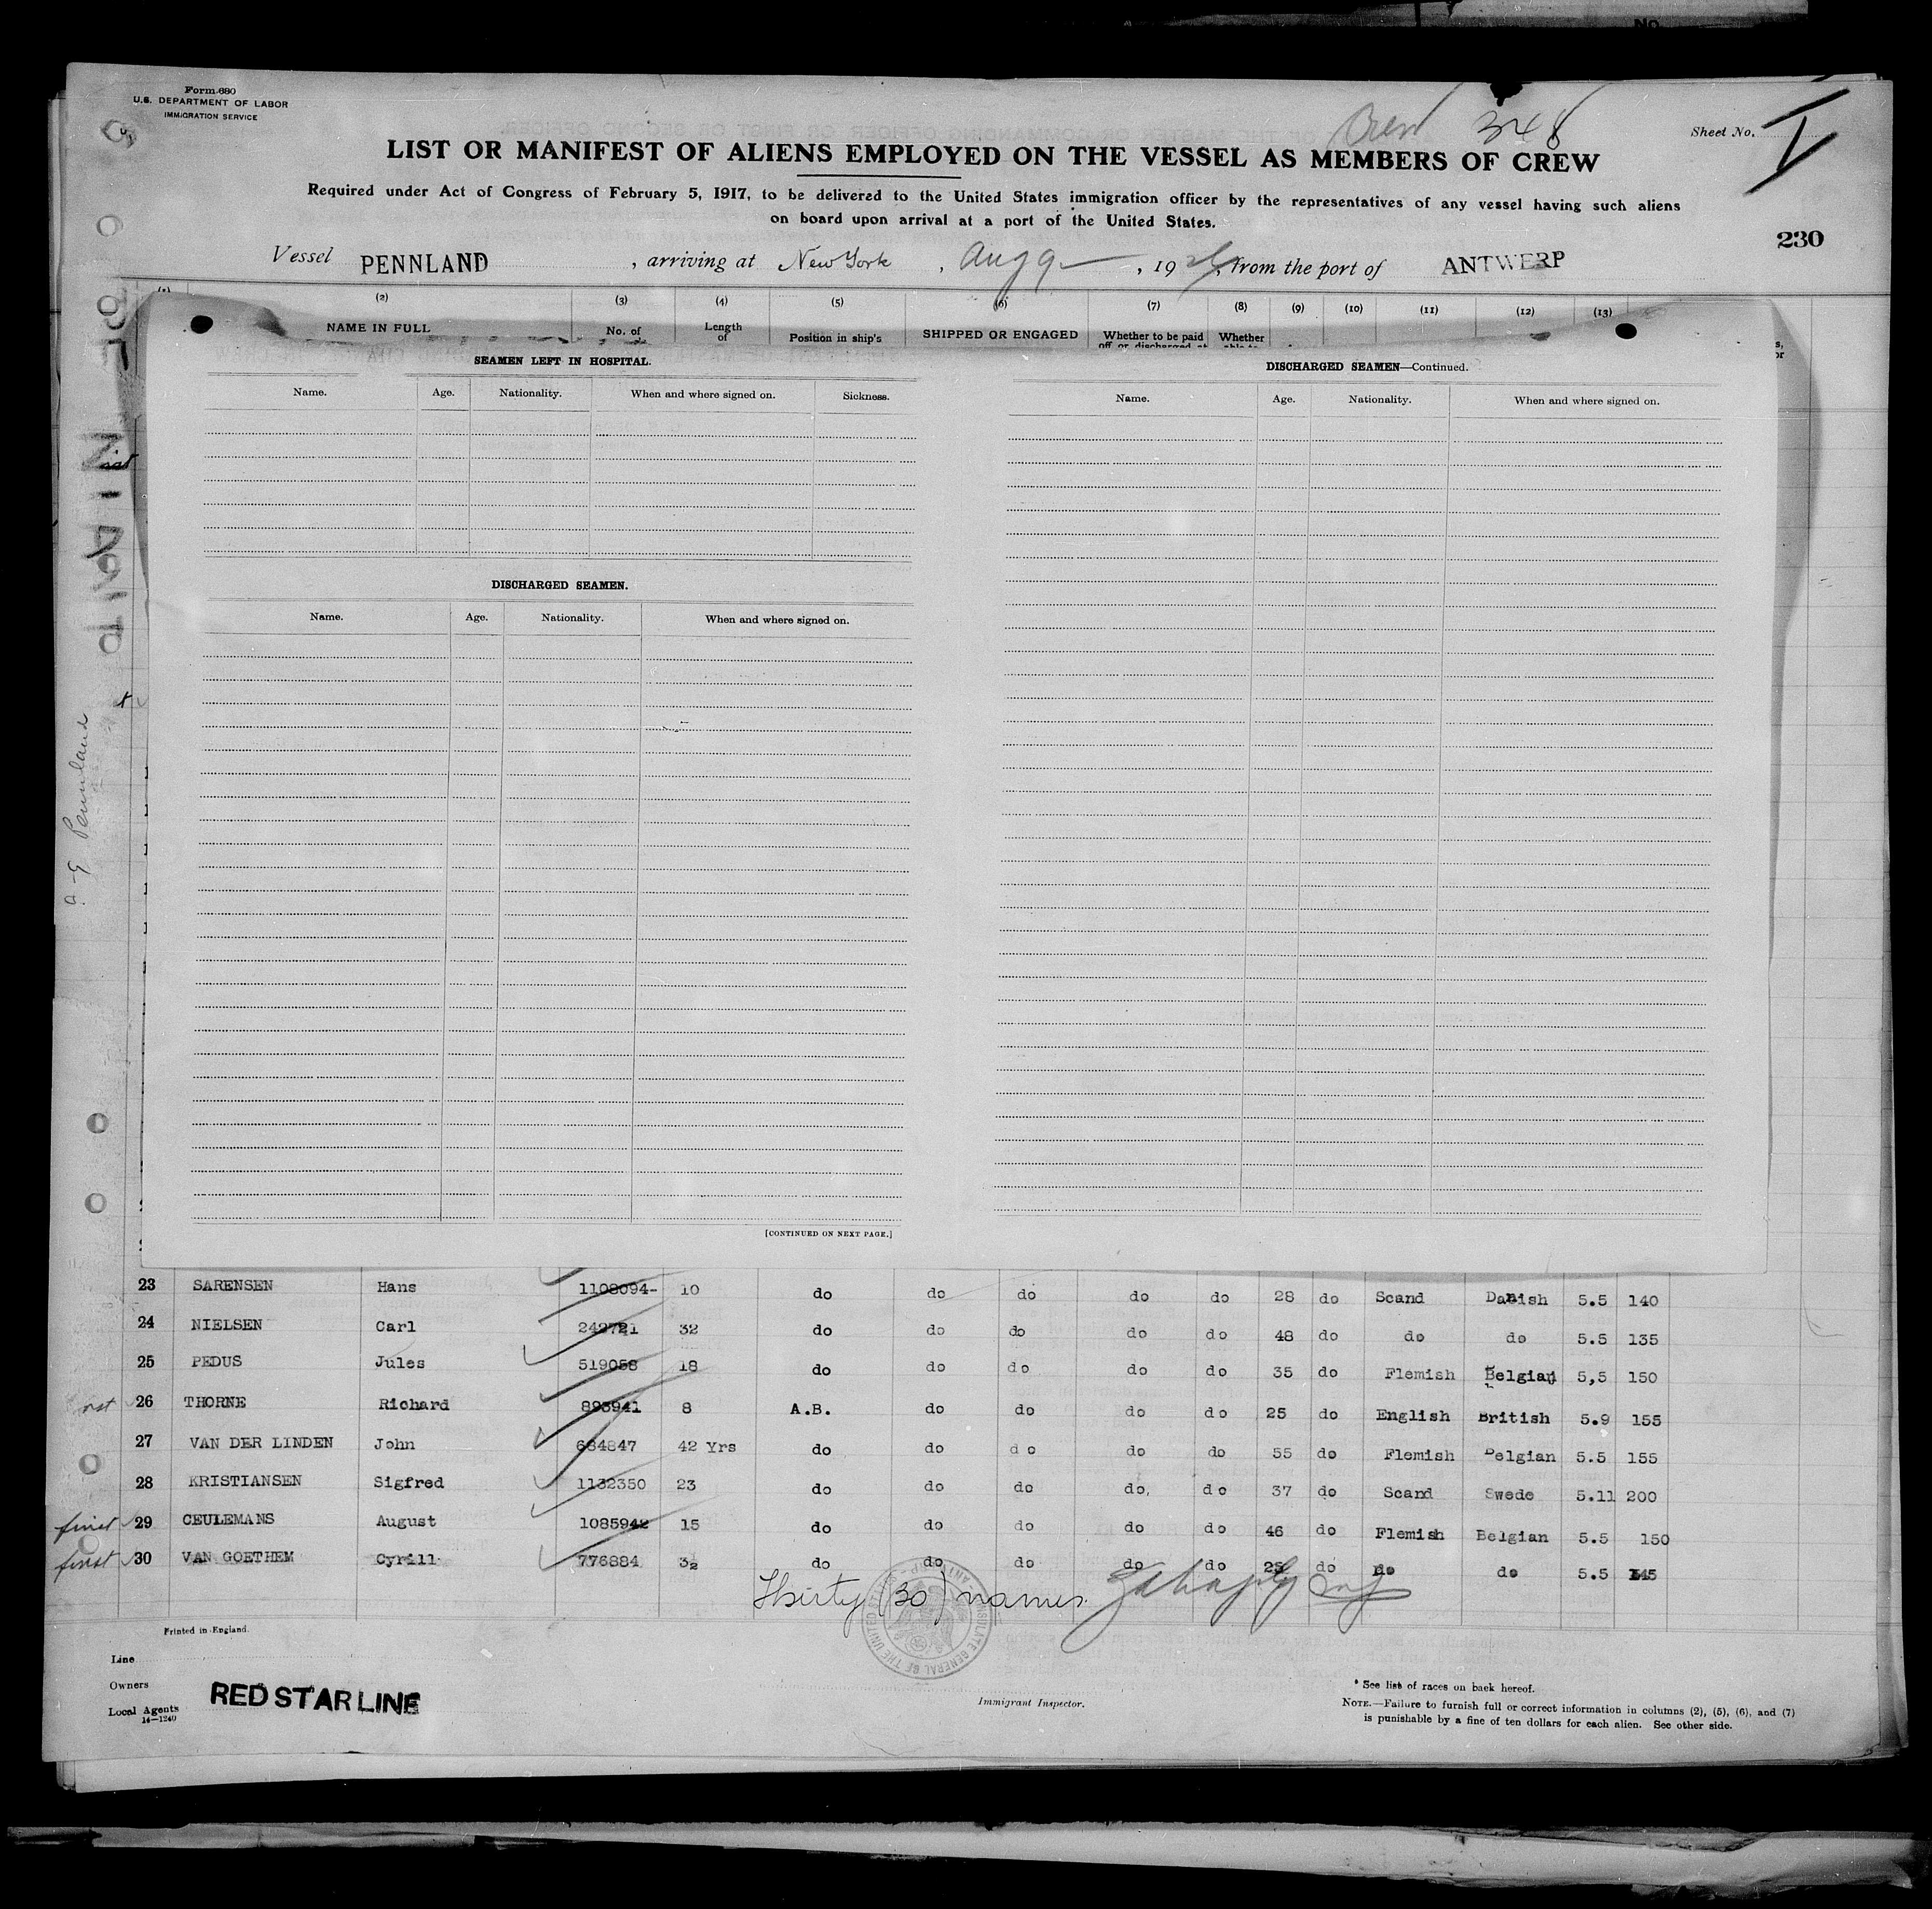 Form 680
U.S. DEPARTMENT OF LABOR
IMMIGRATION SERVICE
Crew 348
Sheet No. I
LIST OR MANIFEST OF ALIENS EMPLOYED ON THE VESSEL AS MEMBERS OF CREW
Required under Act of Congress of February 5, 1917, to be delivered to the United States immigration officer by the representatives of any vessel having such aliens
on board upon arrival at a port of the United States.
230
Vessel PENNLAND, arriving at New York, Aug 9, 19 , from the port of ANTWERP
(2) (3) (4) (5) (6) (7) (8) (9) (10) (11) (12) (13)
NAME IN FULL No. of Length of Position in ship's SHIPPED OR ENGAGED Whether to be paid off or discharged at Whether
SEAMEN LEFT IN HOSPITAL.
Name. Age. Nationality. When and where signed on. Sickness.
DISCHARGED SEAMEN.
Name. Age. Nationality. When and where signed on.
[CONTINUED ON NEXT PAGE.]
DISCHARGED SEAMEN—Continued.
Name. Age. Nationality. When and where signed on.
Pennland
23 SARENSEN Hans 1108094- 10 do do do do do 28 do Scand Danish 5.5 140
24 NIELSEN Carl 249721 32 do do do do do 48 do do do 5.5 135
25 PEDUS Jules 519058 18 do do do do do 35 do Flemish Belgian 5,5 150
26 THORNE Richard 893941 8 A.B. do do do do 25 do English British 5.9 155
27 VAN DER LINDEN John 684847 42 Yrs do do do do do 55 do Flemish Belgian 5.5 155
28 KRISTIANSEN Sigfred 1132350 23 do do do do, do 37 do Scand Swede 5.11 200
first 29 CEULEMANS August 1085942 15 do do do do do 46 do Flemish Belgian 5.5 150
first 30 VAN GOETHEM Cyrill 776884 32 do do do do do 25 do do do 5.5 145
Thirty (30) names
Printed in England.
Line
Owners
Local Agents
14—1240
RED STAR LINE
Immigrant Inspector.
* See list of races on back hereof.
NOTE.—Failure to furnish full or correct information in columns (2), (5), (6), and (7)
is punishable by a fine of ten dollars for each alien. See other side.